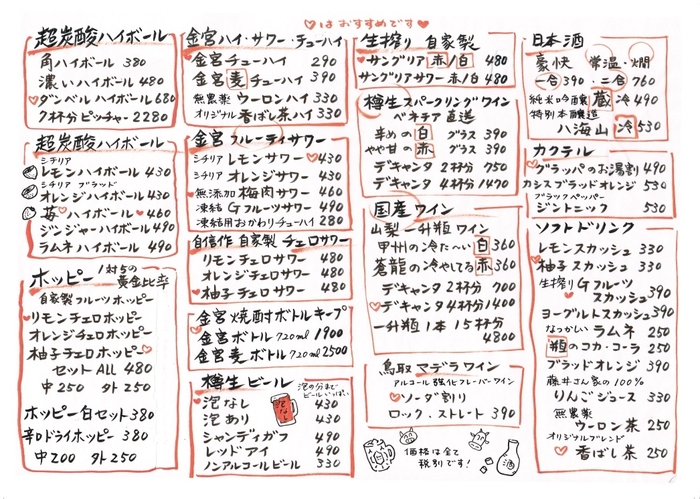 ♡はおすすめです♥
超炭酸ハイボール
角ハイボール 380
濃いハイボール 480
♡ダンベルハイボール 680
7杯分ピッチャー 2280
超炭酸ハイボール
シチリア
レモンハイボール 430
シチリア ブラッド
オレンジハイボール 430
苺♡ハイボール ♥460
ジンジャーハイボール 490
ラムネハイボール 490
ホッピー 1対5の黄金比率
自家製フルーツホッピー
♡リモンチェロホッピー
オレンジチェロホッピー
柚子チェロホッピー♡
セットALL 480
中250 外250
ホッピー白セット380
辛口ドライホッピー 380
中200 外250
金宮ハイ・サワー・チューハイ
♥金宮チューハイ 290
金宮麦チューハイ 390
無農薬 ウーロンハイ 330
オリジナル 香ばし茶ハイ 330
金宮フルーティサワー
シチリア レモンサワー♡430
シチリア オレンジサワー 430
♥無添加 梅肉サワー 460
凍結 Gフルーツサワー 490
凍結用おかわりチューハイ 280
自信作 自家製 チェロサワー
リモンチェロサワー 480
オレンジチェロサワー 480
♥柚子チェロサワー 480
♡金宮焼酎ボトルキープ
金宮ボトル 720ml 1900
金宮麦ボトル 720ml 2500
樽生ビール 泡の分までビールいっぱい
泡なし 430
泡なし
泡あり 430
シャンディガフ 490
レッドアイ 490
ノンアルコールビール 330
生搾り 自家製
♥サングリア 赤/白 480
サングリアサワー 赤/白 480
樽生スパークリングワイン
ベネチア直送
辛めの白 グラス 390
やや甘の赤 グラス 390
デキャンタ 2杯分 750
デキャンタ 4杯分 1470
国産ワイン
山梨 一升瓶ワイン
甲州の冷た〜い白360
蒼龍の冷やしてる赤360
デキャンタ 2杯分 700
♡デキャンタ 4杯分1400
一升瓶1本 15杯分
4800
鳥取 マデラワイン
アルコール強化フレーバーワイン
♡ソーダ割り
ロック、ストレート 390
価格は全て
税別です!
酒
日本酒
豪快 常温・燗
一合390・二合760
純米吟醸 蔵 冷490
特別本醸造
八海山 冷530
カクテル
♥グラッパのお湯割 490
カシスブラッドオレンジ 530
ブラックペッパー
ジントニック 530
ソフトドリンク
レモンスカッシュ 330
♥柚子スカッシュ 330
生搾り Gフルーツ
♡スカッシュ390
ヨーグルトスカッシュ390
なつかしい ラムネ 250
瓶のコカ・コーラ 250
ブラッドオレンジ 390
藤井さん家の100%
りんごジュース 330
無農薬
ウーロン茶 250
オリジナルブレンド
♡香ばし茶 250